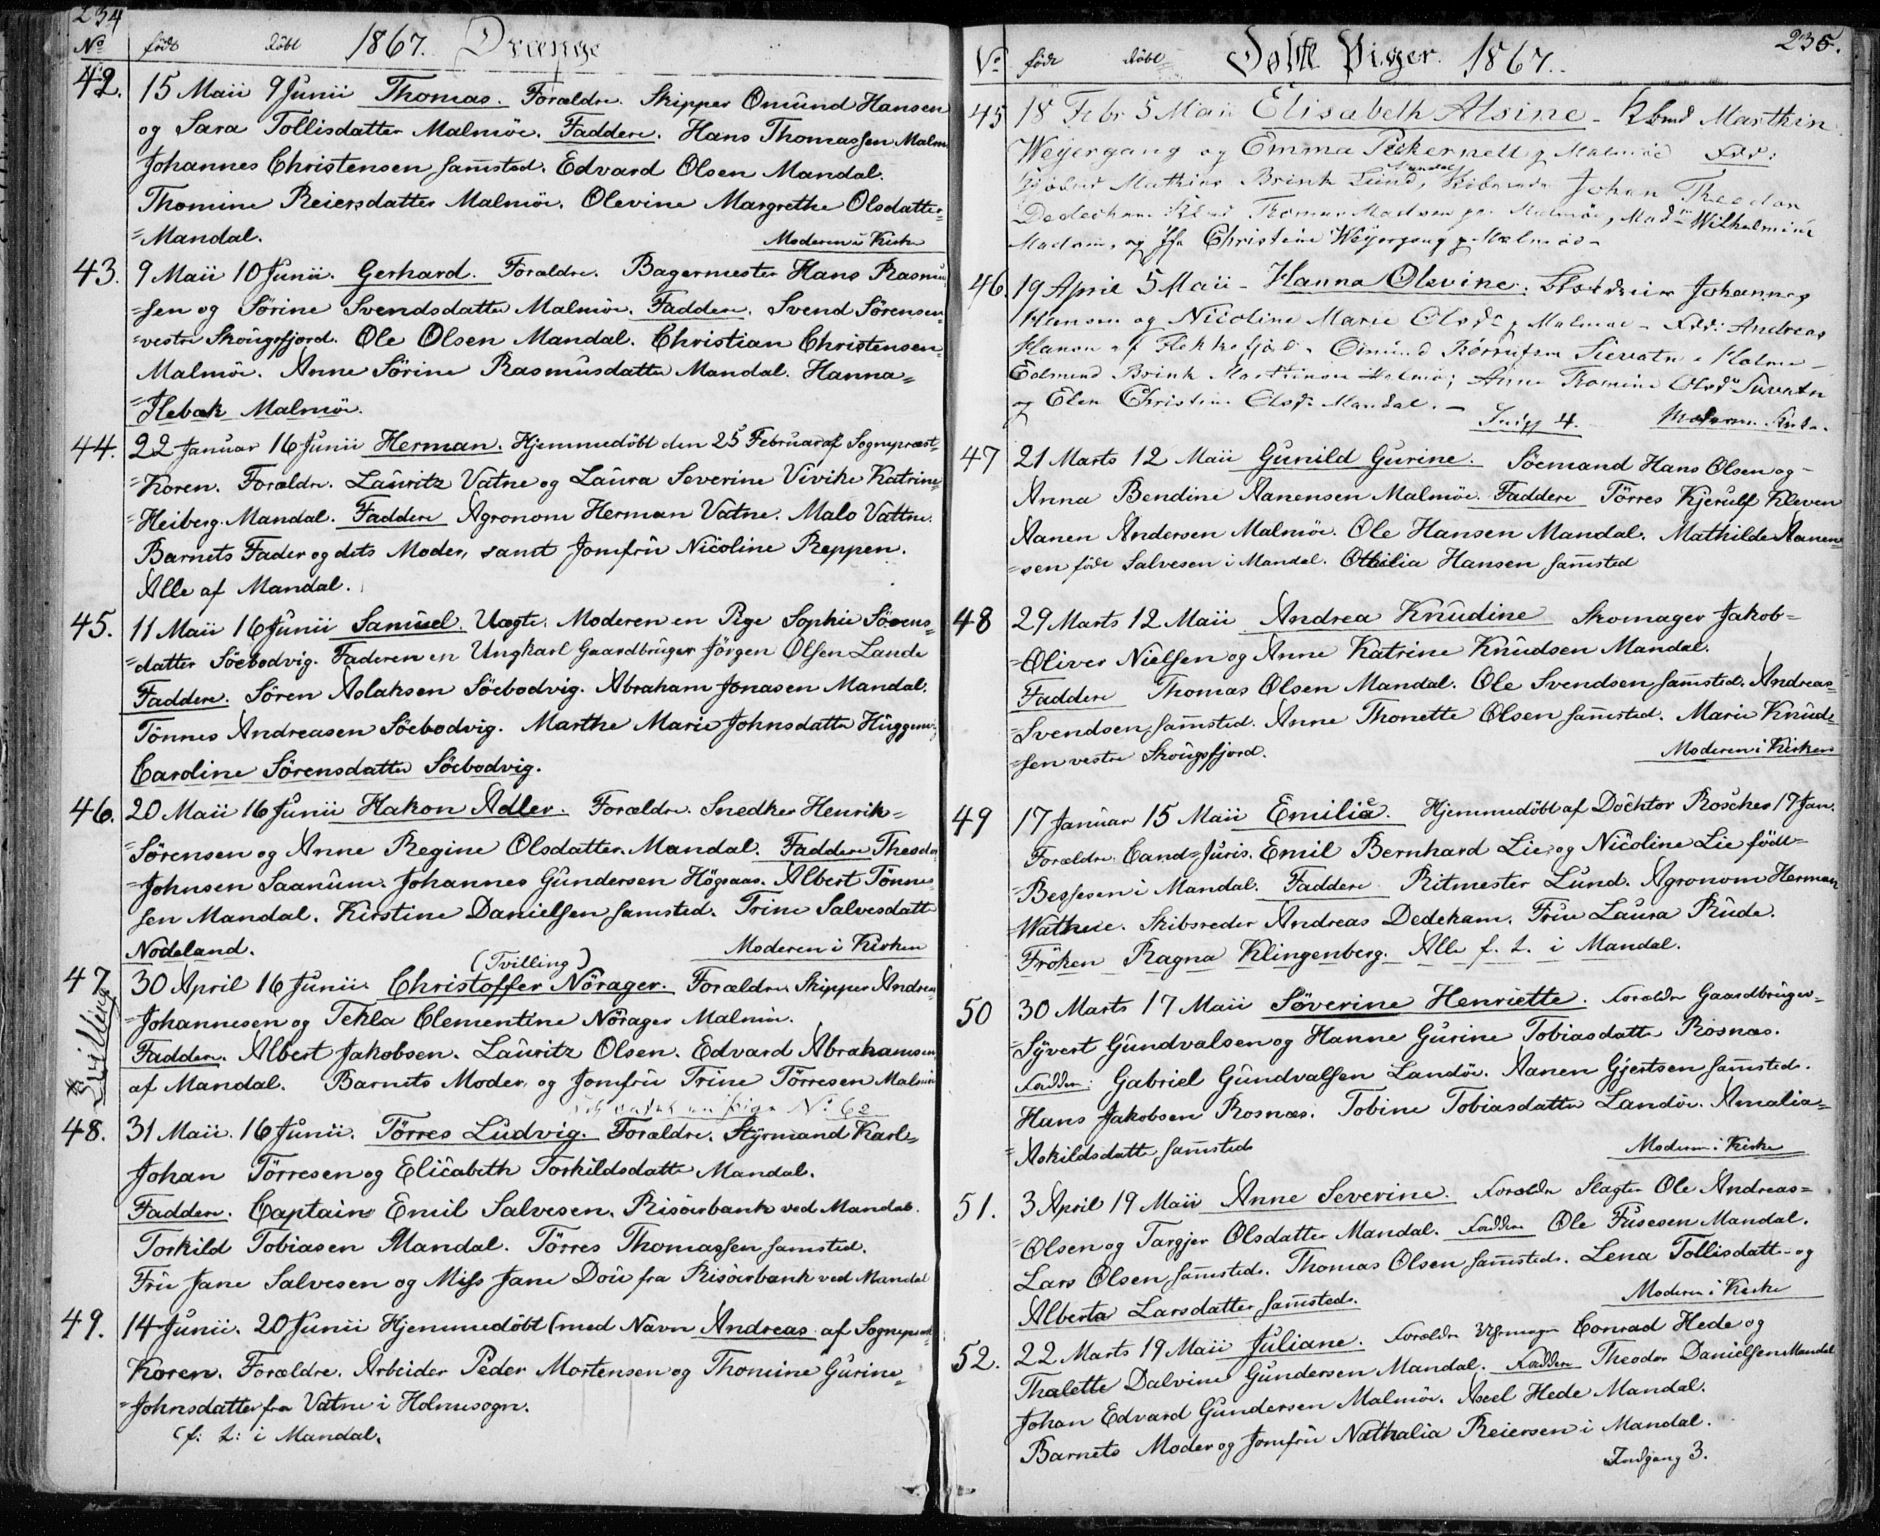 234
No født døbt 1867. Drænge
42. 15 Maii 9 Junii Thomas. Forældre. Skipper Omund Hansen
og Sara Tollisdatter Malmöe. Faddere. Hans Thomassen Malm
Johannes Christensen samsted. Edvard Olsen Mandal.
Thomine Reiersdatter Malmöe. Olevine Margrethe Olsdatter=
=Mandal. Moderen i Kirke
43. 9 Maii 10 Junii. Gerhard. Forældre. Bagermester Hans Rasmu
=sen og Sörine Svendsdatter Malmöe. Faddere. Svend Sörensen=
=vestre Skougsfjord. Ole Olsen Mandal. Christian Christensen=
Malmöe. Anne Sörine Rasmusdatter Mandal. Hanna=
=Flebæk Malmöe.
44. 22 Januar 16 Junii Herman. Hjemmedöbt den 25 Februar af Sognepræst=
=Koren. Forældre. Lauritz Vatne og Laura Severine Vivike Katrine=
=Heiberg. Mandal. Faddere Agronom Herman Vatne. Malo Vattne.
Barnets Fader og dets Moder, samt Jomfru Nicoline Reppen.
Alle af Mandal.
45. 11 Maii 16 Junii Samuel. Uægte. Moderen en Pige Sophie Sörens=
=datter Söebodvig. Faderen en Ungkarl Gaardbruger Jörgen Olsen Lande
Faddere. Sören Aslaksen Söebodvig. Abraham Jonasen Mandal.
Tönnes Andreasen Söebodvig. Marthe Marie Johnsdatter
Caroline Sörensdatter Söebodvig.
46. 20 Maii 16 Junii Hakon Adler. Forældre. Snedker Henrik=
=Sörensen og Anne Regine Olsdatter. Mandal. Faddere Theodor
=Johnsen Saanum. Johannes Gundersen Högsaas. Albert Tönne
sen Mandal. Kirstine Danielsen samsted. Trine Salvesdatter
Nodeland. Moderen i Kirken
(Tvilling)
47. 30 April 16 Junii Christoffer Nörager. Forældre Skipper Andrea
Tvilling
=Johannesen og Tekla Clementine Nörager Malmöe.
Faddere. Albert Jakobsen. Lauritz Olsen. Edvard Abrahamsen
af Mandal. Barnets Moder, og Jomfru Trine Törresen Malmöe
No 60
48. 31 Maii. 16 Junii. Törres Ludvig. Forældre. Styrmand Karl=
Johan Törresen og Elicabeth Torkildsdatter Mandal.
Faddere. Captain Emil Salvesen. Risöerbank ved Mandal.
Torkild Tobiasen Mandal. Törres Thomassen samsted.
Fru Jane Salvesen og Miss Jane Dou fra Risöerbank ved Mandal
49. 14 Junii. 20 Junii Hjemmedöbt (med Navn Andreas af Sognepræst
Koren. Forældre. Arbeider Peder Mortensen og Thomine Gurine=
=Johnsdatter fra Vatne i Holmesogn.
(f: L: i Mandal.
235.
No født døbt Døbte Piger. 1867.
45 18 Febr 5 Maii Elisabeth Alsine - Marthin
Weyergang og Emma Pickernell p Malmöe Fad:
Mathias Brink Lund, Johan Theodor
Dedecham Thomas Madsen paa Malmöe, Madm Wilhelmine
Madsen, og Jfr Christine Weyergang p Malmöe -
46. 19 April 5 Maii - Hanna Olevine. Johannes
Hansen og Nicoline Marie Olsdr p Malmöe - Fad: Andreas
Hansen af Flekkefjord. Omund Holme -
Edmund Brink Marthinsen Malmöe; Anne Tomine Olsdr
og Elen Christine Olsdr Mandal. -
Indg 4. Moderen i Kirke.
47 21 Marts 12 Maii Gunild Gurine. Söemand Hans Olsen og=
Anna Bendine Aanensen Malmöe. Faddere Törres Kjerulf Kleven
Aanen Andersen Malmöe. Ole Hansen Mandal. Mathilde Aanen=
=sen föde Salvesen i Mandal. Othilia Hansen samsted
48 29 Marts 12 Maii Andrea Knudine Skomager Jakob=
=Oliver Nielsen og Anne Katrine Knudsen Mandal.
Faddere Thomas Olsen Mandal. Ole Svendsen samsted. Andreas=
=Svendsen samsted. Anne Thonette Olsen samsted. Marie Knud=
=sen vestre Skougsfjord. Moderen i Kirken
49 17 Januar 15 Maii Emilie. Hjemmedöbt af Docktor Roscher 17 Jan.
Forældre. Cand=Juris. Emil Bernhard Lie, og Nicoline Lie födt=
=Bessesen i Mandal. Faddere Ritmester Lund. Agronom Herman
=Wathne. Skibsreder Andreas Dedekam. Frue Laura Rude.
Fröken Ragna Klingenberg. Alle f. L. i Mandal.
50 30 Marts 17 Maii Söverine Henriette. Foreldre Gaardbruger=
=Syvert Gundvalsen og Hanne Gurine Tobiasdatter Rosnæs.
Faddere: Gabriel Gundvalsen Landöe. Aanen Gjertsen samsted.
Hans Jakobsen Rosnæs. Tobine Tobiasdatter Landöe. Amalia=
=Askildsdatter samsted Moderen i Kirke
51. 3 April 19 Maii Anne Severine. Foreldre Slagter Ole Andreas=
=Olsen og Targjer Olsdatter Mandal. Faddere Ole Fusesen Mandal.
Lars Olsen samsted. Thomas Olsen samsted. Lena Tollisdatter og
Alberta Larsdatter samsted. Moderen i Kirke
52. 22 Marts 19 Maii Juliane. Foreldre Uhrmager Conrad Hede og
Thalette Dalvine Gundersen Mandal. Faddere Theodor Danielsen Mandal
Johan Edvard Gundersen Malmöe. Axel Hede Mandal.
Barnets Moder og Jomfru Nathalia Reiersen i Mandal.
Indgang 3.